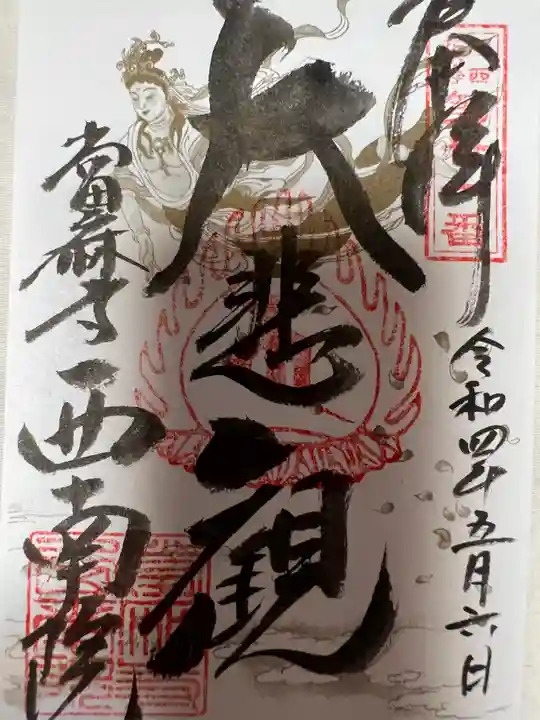 奉拝
令和四年五月六日
大悲観
當麻寺西南院